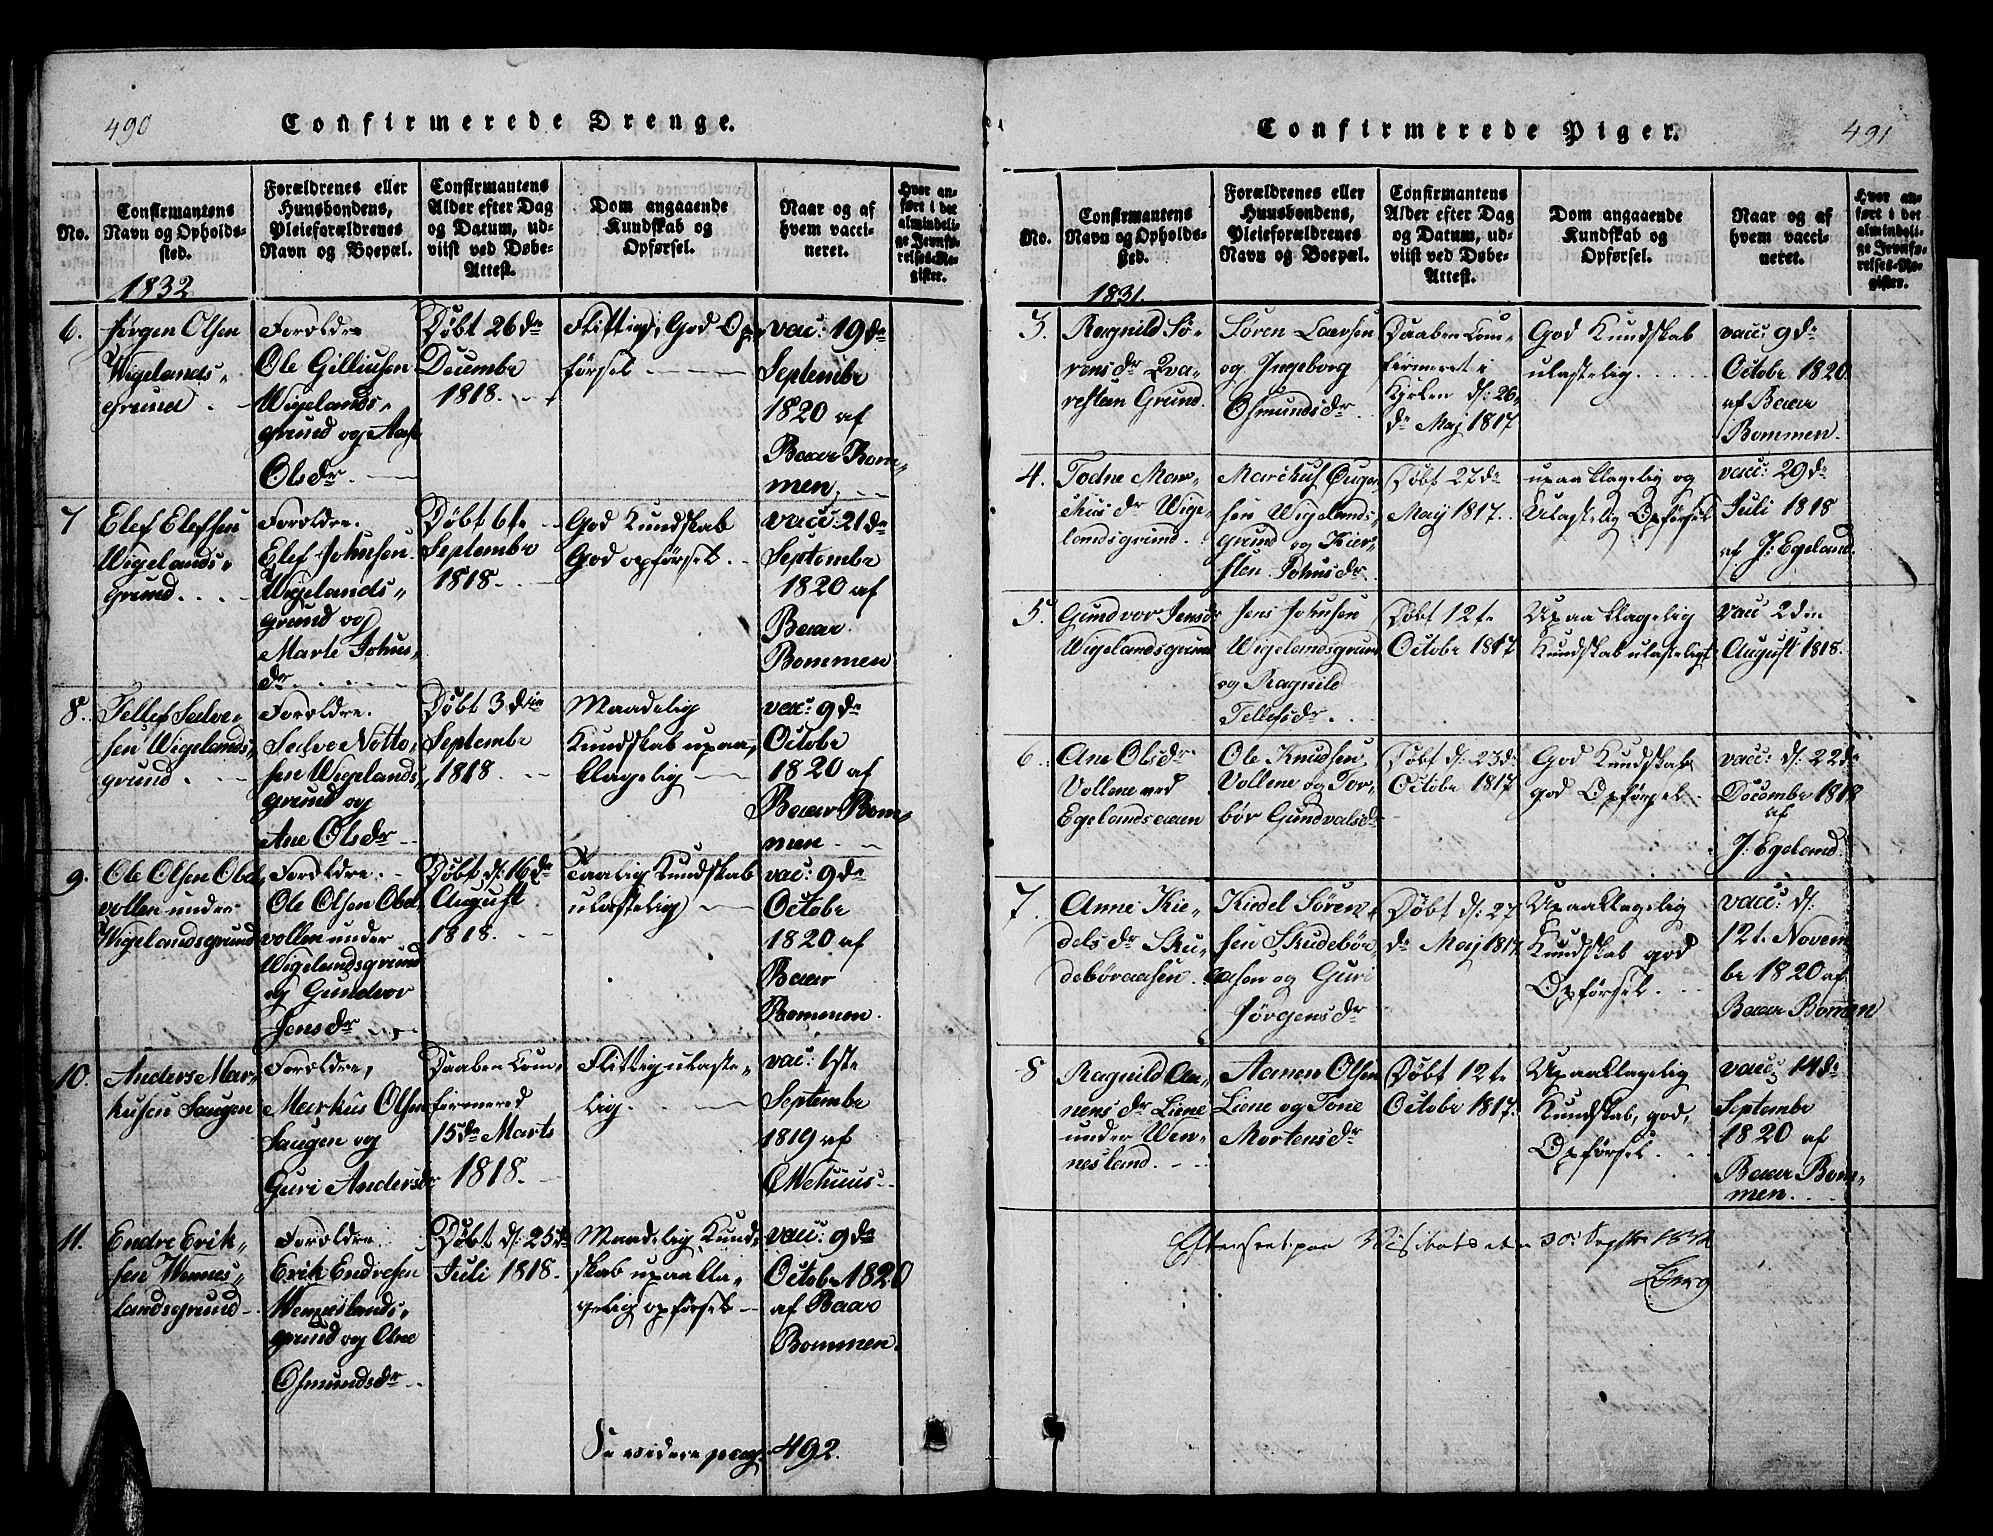 490
Confirmerede Drenge.
No.
Confirmantens
Navn og Opholds-
sted.
Forældrenes eller
Huusbondens,
Pleieforældrenes
Navn og Boepæl.
Confirmantens
Alder efter Dag
og Datum, ud-
viist ved Døbe-
Attest.
Dom angaaende
Kundskab og
Opførsel.
Naar og af
hvem vacci-
neret.
Hvor an-
ført i det
almindeli-
ge Jevnfø-
relses-Re-
gister.
1832
6.
Jørgen Olsen
Wigelands-
grund.
Foroldre
Ole Gelliusen
Wigelands-
grund og Aase
Olsdr.
Døbt 26de
Decembe
1818.
Flittig, God Op-
førsel
vac: 19de
Septembe
1820 af
Baar Bom-
men.
7
Elef Elefsen
Wigelands-
Grund.
Foroldre.
Elef Johnsen
Wigelands-
grund og
Marte Johns-
dr.
Døbt 6te
Septembe
1818.
God Kundskab
God opførsel.
vacc: 21de
Septembe
1820 af
Baar
Bommen
8.
Tellef Salve-
sen Wigelands-
grund.
Foroldre.
Salve Notto-
sen Wigelands-
grund og
Ane Olsdr
Døbt 3die
Septembe
1818.
Maadelig
Kundskab upaa-
klagelig
vac: 9de
Octobe
1820 af
Baar Bom-
men.
9.
Ole Olsen Obel-
vollen under
Wigelandsgrund
Foroldre.
Ole Olsen Obel-
vollen under
Wigelandsgrund
og Gundvor
Jensdr
Døbt d: 16de
August
1818.
Taalig Kundskab
ulastelig
vac: 9de
Octobe
1820 af
Baar
Bommen.
10.
Anders Mar-
kusen Saugen
Foroldre,
Markus Olsen
Saugen og
Guri Andersdr
Daaben Com-
firmered
15de Marts
1818.
Flittig ulaste-
lig.
vac: 1ste
Septembe
1819 af
11.
Endre Erik-
sen Wennes-
landsgrund
Foroldre.
Erik Endresen
Wenneslands-
grund og Ane
Osmundsdr
Døbt d: 25de
Juli 1818.
Maadelig Kund-
skab upaakla-
gelig opførsel
vacc: 9de
Octobe 1820
af Baar
Bommen.
Se videre pag: 492.
491
Confirmerede Piger.
No.
Confirmantens
Navn og Opholds-
sted.
Forældrenes eller
Huusbondens,
Pleieforældrenes
Navn og Boepæl.
Confirmantens
Alder efter Dag
og Datum, ud-
viist ved Døbe-
Attest.
Dom angaaende
Kundskab og
Opførsel.
Naar og af
hvem vacci-
neret.
Hvor an-
ført i det
almindeli-
ge Jevnfø-
relses-Re-
gister.
1831.
3.
Ragnild Sø-
rensdr Qva-
resteen Grund.
Søren Larsen
og Ingeborg
Osmundsdr.
Daaben Com-
firmeret i
Kirken d: 26-
de Maj 1817
God Kundskab
ulastelig.
vacc: 9de
Octobe 1820
af Baar
Bommen.
4.
Todne Mar-
kusdr Wige-
landsgrund.
Markus
sen Wigelands-
grund og Kier-
sten Johnsdr.
Døbt 27de
Maij 1817.
upaaklagelig og
Ulastelig Opførsel
vacc: 29de
Juli 1818
af J: Egeland.
5.
Gundvor Jensdr
Wigelandsgrund
Jens Johnsen
Wigelandsgrund
og Ragnild
Tellefsdr.
Døbt 12te
Octobe 1817
Upaaklagelig
Kundskab ulasteligt
vacc 2den
August 1818.
6.
Ane Olsdr
Vollene ved
Egelandsaaen
Ole Knudsen
Vollene og Tor-
bør Gundvalsdr
Døbt d: 23de
Octobe 1817
God Kundskab
god Opførsel.
vacc: d: 22de
Decembe 1818
af
J: Egeland.
7.
Anne Kie-
delsdr Sku-
debøraasen.
Kiedel Søren-
sen Skudebør-
aasen og Guri
Jørgensdr
Døbt d: 27
de Maj 1817.
Upaaklagelig
Kundskab god
Opførsel.
vacc: d.
12t. Novem
be 1820 af
Baar Bommen
8
Ragnild Aa-
nensdr Liene
under Wen-
nesland.
Aanen Olsen
Liene og Tone
Mortensdr
Døbt 12te
Octobe 1817.
Upaaklagelig
Kundskab, god,
Opførsel.
vacc: 14de
Septembe
1820 af
Baar Bom-
men.
Efterseet paa Visitats den 30. Septbr 1832
Berg